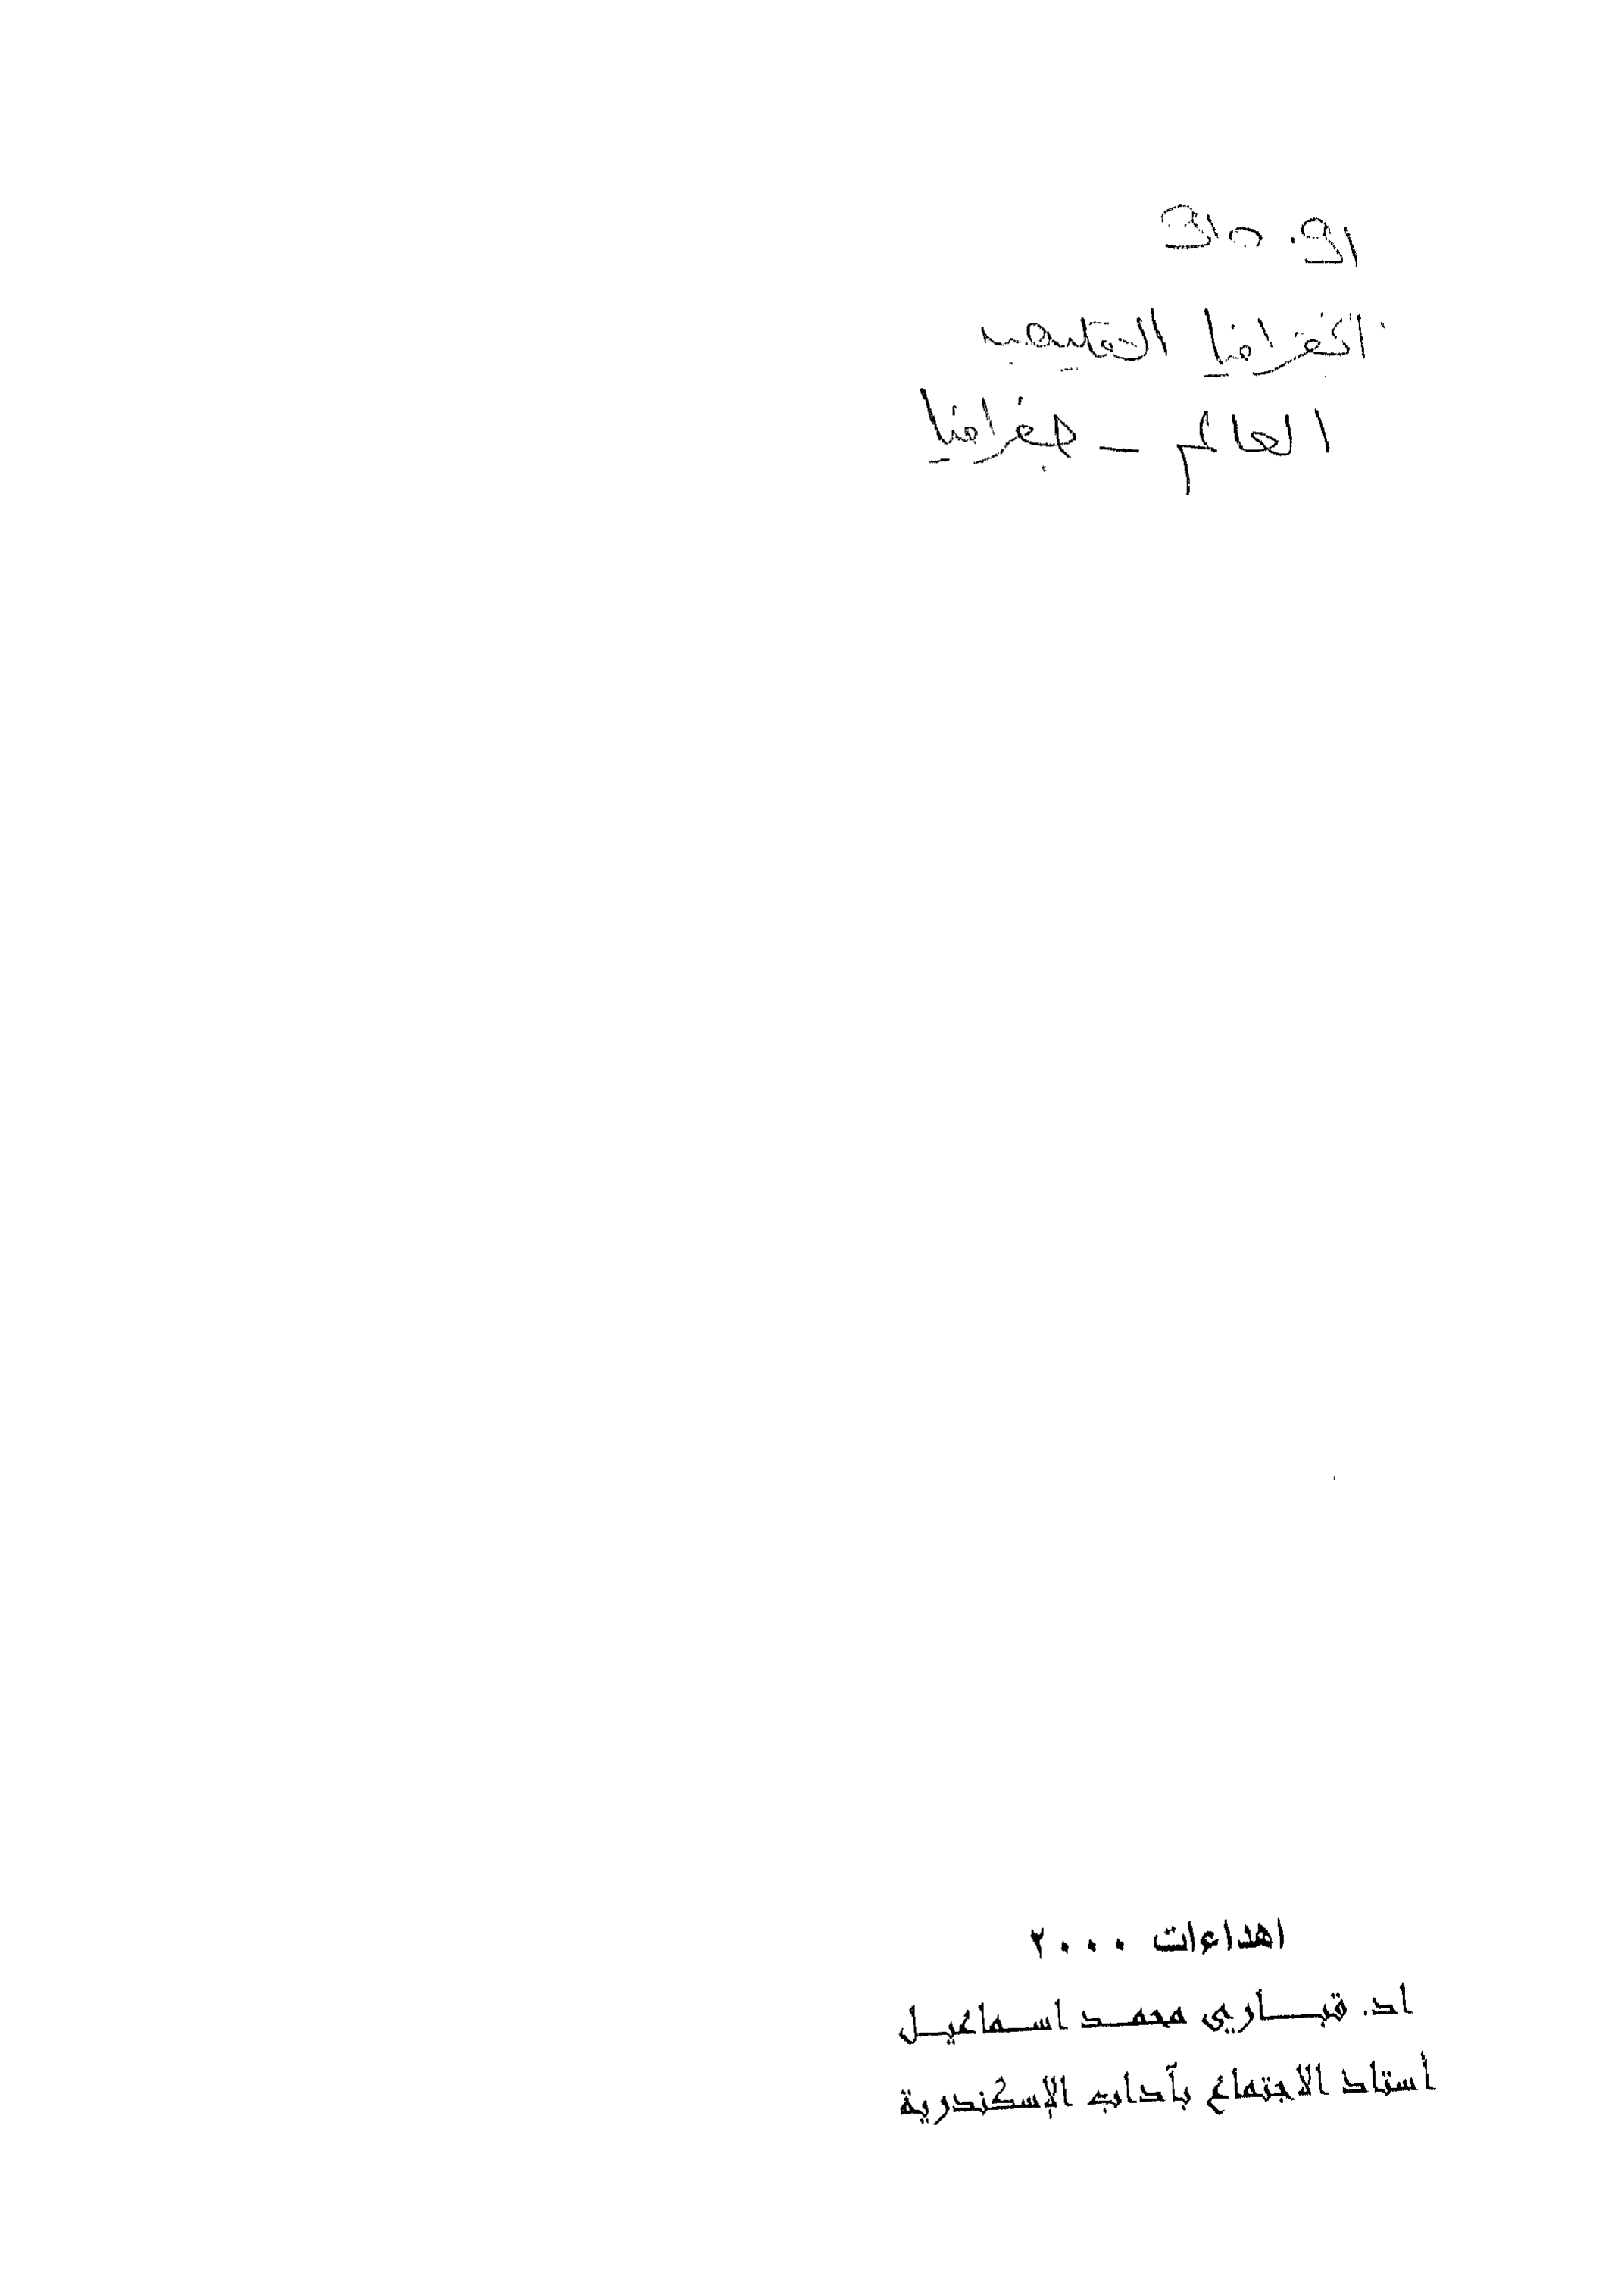 الجغرافيا
العالم - جغرافيا
اهداءات ٢٠٠٠
اد. قبارى محمد اسماعيل
أستاذ الاجتماع بآداب الإسكندرية